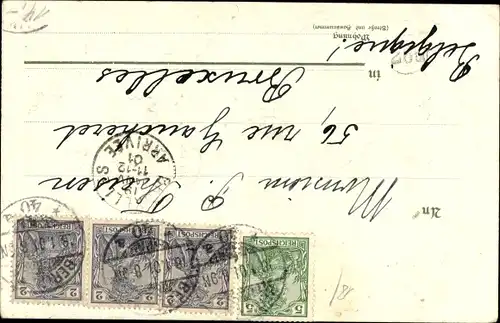 An
Monsieur P. Theisen
56, rue Gaucheret
in Bruxelles
Wohnung
(Straße und Hausnummer)
Belgique!
BRUXELLES
ARRIVÉE
11-12
REICHSPOST
2
REICHSPOST
2
REICHSPOST
2
REICHSPOST
5